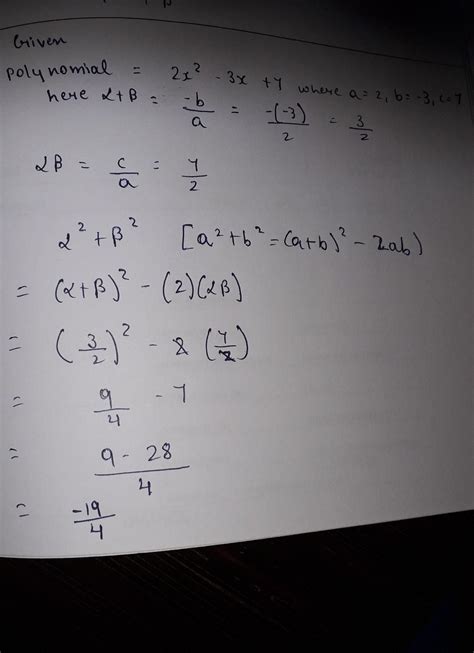 Given
polynomial = 2x² - 3x + 7 where a = 2, b = -3, c = 7
here α+β = -b/a = -(-3)/2 = 3/2
αβ = c/a = 7/2
α² + β² [a² + b² = (a+b)² - 2ab)
= (α+β)² - (2)(αβ)
= (3/2)² - 2 (7/2)
= 9/4 - 7
= 9 - 28/4
= -19/4